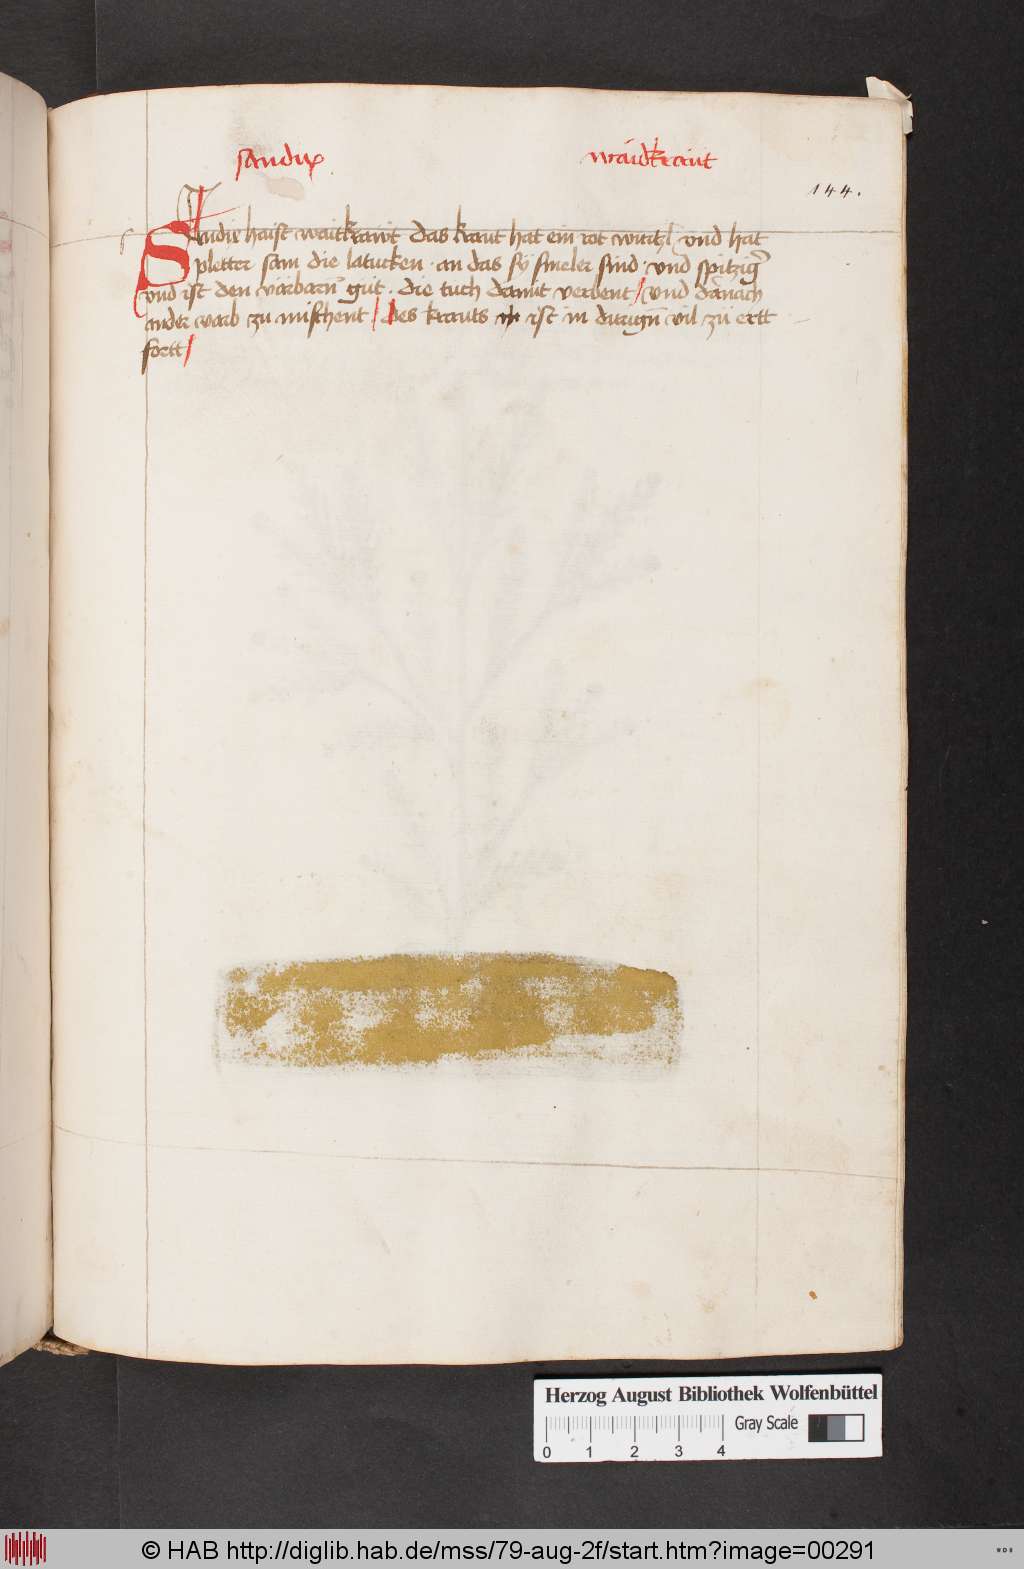 sandix waidkraut
144.
Sandix haist waitkrawt das kraut hat ein rot wurtzl vnd hat
pletter sam die latucken · an das sy smeler sind · vnd spitzig
vnd ist den värbern güt · die tuch damit verbent / vnd darnach
ander varb zu mischent / des krauts ist in durign vil zu ertt
fortt /
Herzog August Bibliothek Wolfenbüttel
Gray Scale
0 1 2 3 4
© HAB http://diglib.hab.de/mss/79-aug-2f/start.htm?image=00291
WDB